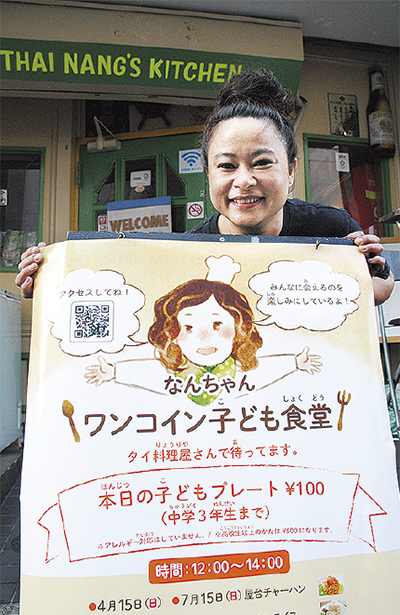 THAI NANG'S KITCHEN
WELCOME
アクセスしてね！
みんなに会えるのを
楽しみにしているよ！
なんちゃん
ワンコイン子ども食堂
タイ料理屋さんで待ってます。
本日の子どもプレート ¥100
(中学3年生まで)
※アレルギー対応はしていません。/ ※高校生以上のかたは¥500になります。
時間：12:00〜14:00
●4月15日(日) ●7月15日(日) 屋台チャーハン